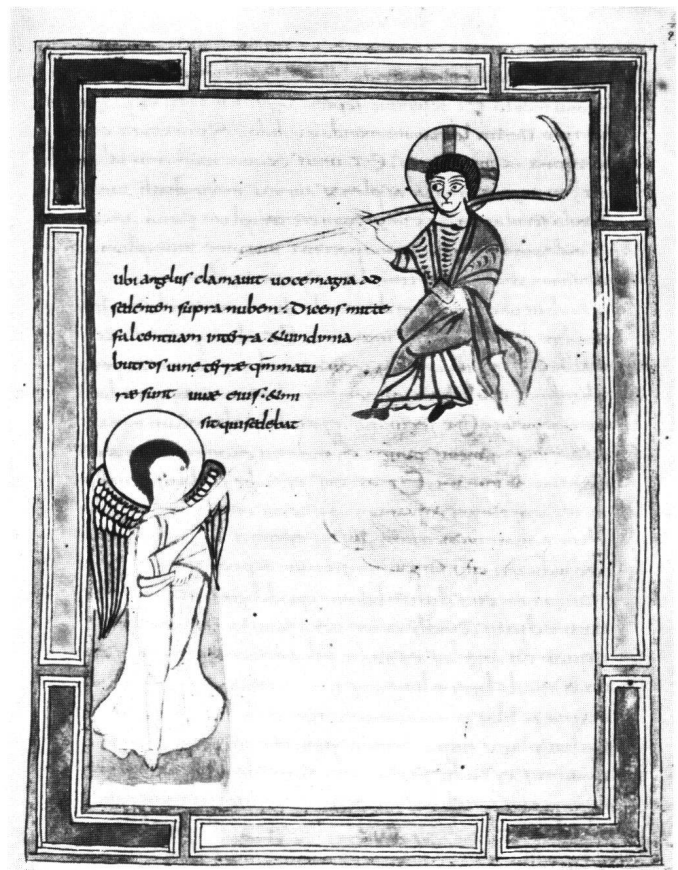 ubi angelus clamauit uoce magna ad
sedentem supra nubem. Dicens mitte
falcem tuam in terra & uindimia
butros uine terræ qm̅ matu
ræ sunt uuæ eius. & om
sit qui sedebat